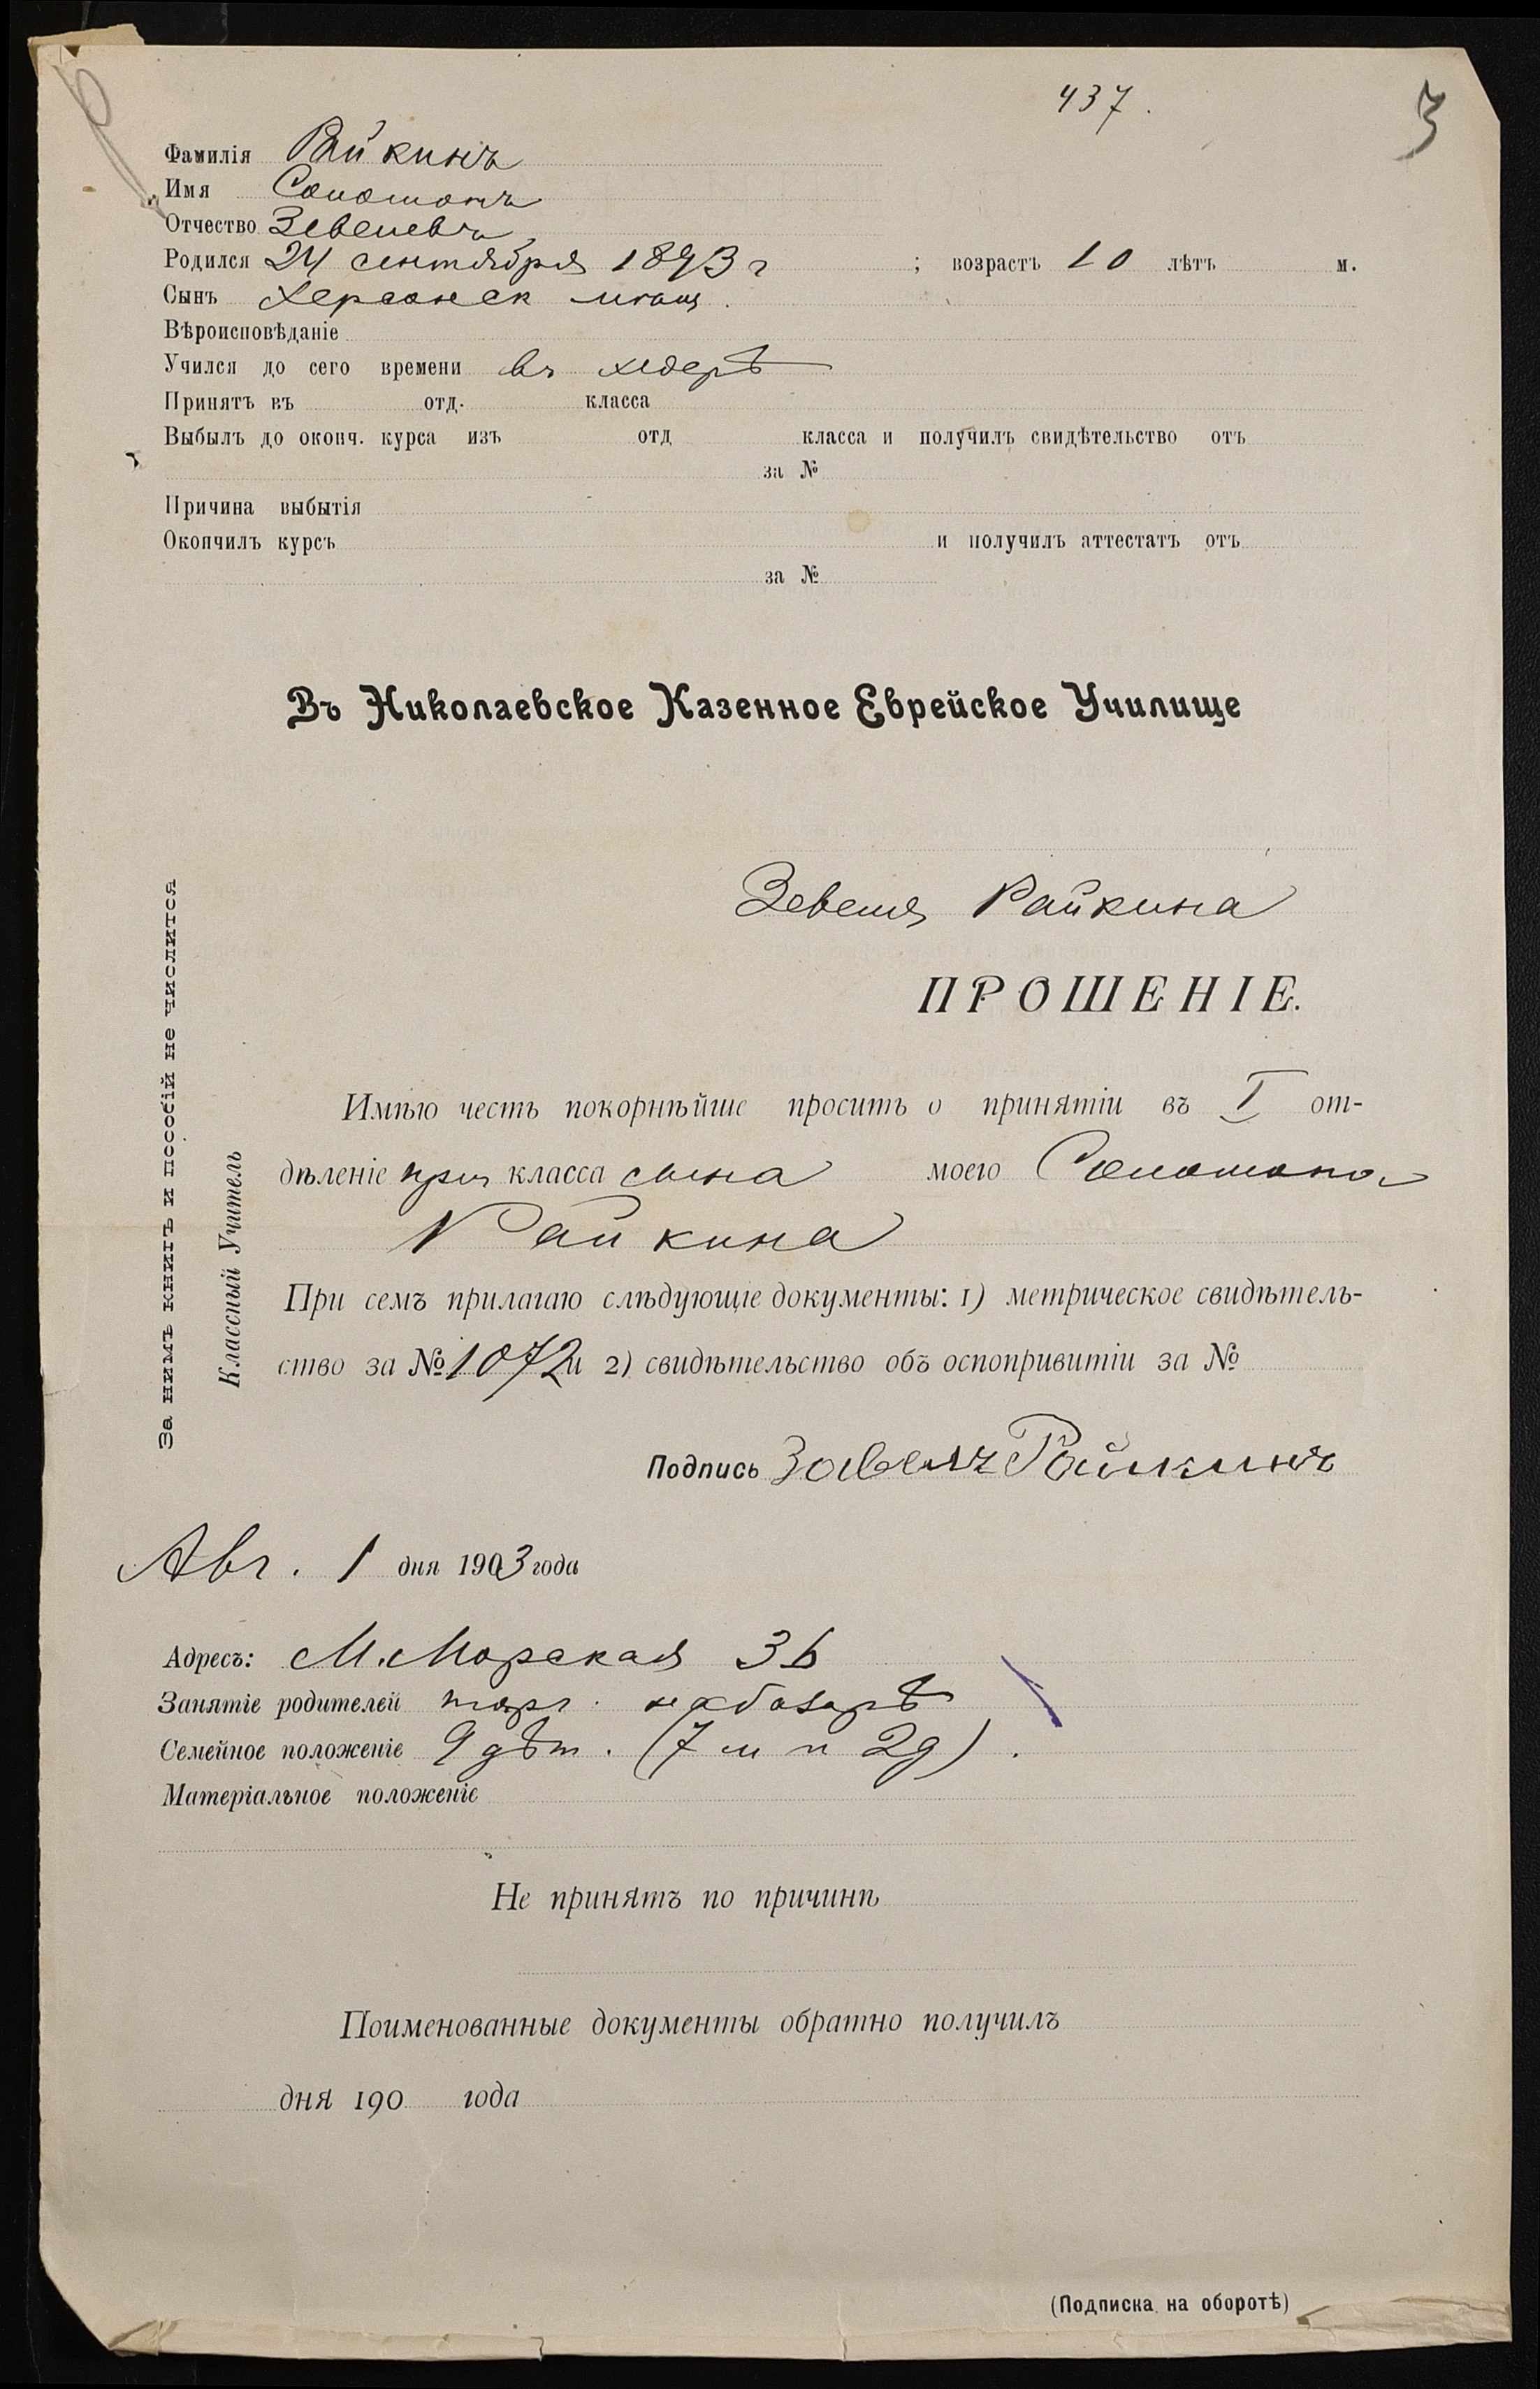 437.
3
Фамилія Райкинъ
Имя Соломонъ
Отчество Зевелевъ
Родился 24 сентября 1893 г ; возрастъ 10 лѣтъ м.
Сынъ Херсонск мѣщ.
Вѣроисповѣданіе
Учился до сего времени въ хедерѣ
Принятъ въ отд. класса
Выбылъ до оконч. курса изъ отд класса и получилъ свидѣтельство отъ
за №
Причина выбытія
Окончилъ курсъ и получилъ аттестатъ отъ
за №
Въ Николаевское Казенное Еврейское Училище
Зевеля Райкина
ПРОШЕНІЕ.
Имѣю честь покорнѣйше просить о принятіи въ I от-
дѣленіе приг класса сына моего Соломона
Райкина
При семъ прилагаю слѣдующіе документы: 1) метрическое свидѣтель-
ство за № 1072 и 2) свидѣтельство объ оспопривитіи за №
Подпись Завель Райкинъ
За нимъ книгъ и пособій не числится
Классный Учитель
Авг. 1 дня 1903 года
Адресъ: М. Морская 36
Занятіе родителей торг. на базарѣ
Семейное положеніе 9 дѣт. (7 м и 2 д).
Матеріальное положеніе
Не принятъ по причинѣ
Поименованные документы обратно получилъ
дня 190 года
(Подписка на оборотѣ)